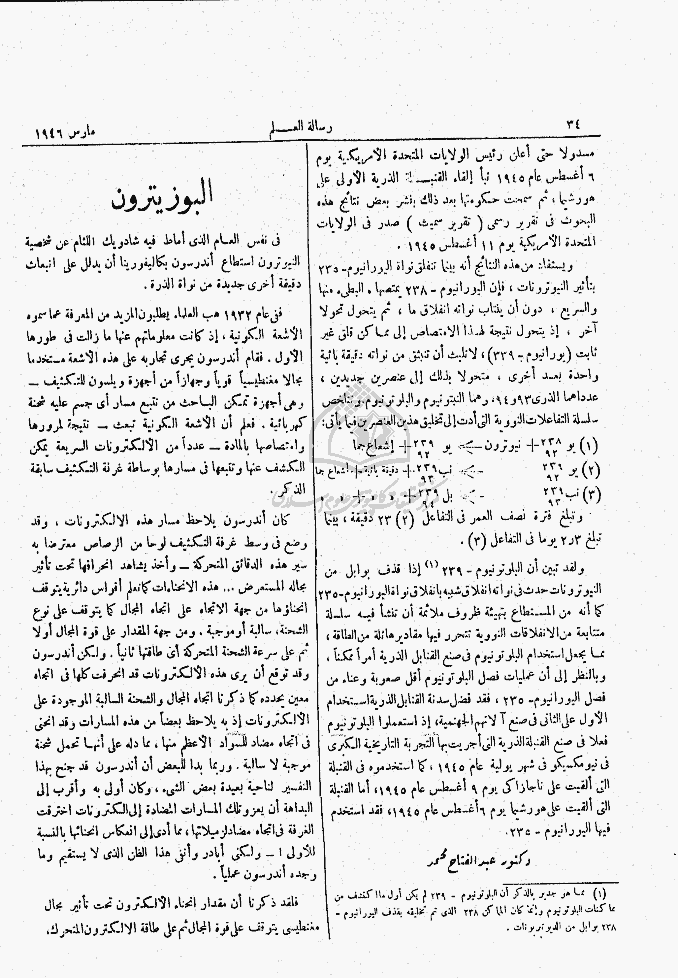 ٣٤
رسالة العلم
مارس ١٩٤٦
مسدولا حتى أعلن رئيس الولايات المتحدة الأمريكية يوم
٦ أغسطس عام ١٩٤٥ نبأ إلقاء القنبلة الذرية الأولى على
هورشيما، ثم سمحت حكومتها بعد ذلك بنشر بعض نتائج هذه
البحوث فى تقرير رسمى ( تقرير سميث ) صدر فى الولايات
المتحدة الأمريكية يوم ١١ أغسطس ١٩٤٥ .
ويستفاد من هذه النتائج أنه بينما تنفلق نواة اليورانيوم - ٢٣٥
بتأثير النيوترونات ، فإن اليورانيوم - ٢٣٨ يمتصها ، البطىء منها
والسريع ، دون أن ينتاب نواته انفلاق ما ، ثم يتحول تحولا
آخر ، إذ يتحول نتيجة لهذا الامتصاص إلى مماكن قلق غير
ثابت (يورانيوم - ٢٣٩)، لاتلبث أن تنبثق من نواته دقيقة بائية
واحدة بعد أخرى ، متحولا بذلك إلى عنصرين جديدين ،
عددهما الذرى ٩٣و٩٤، وهما النبتونيوم والبلوتونيوم. وتتلخص
سلسلة التفاعلات النووية التى أدت إلى تخليق هذين العنصرين فيما يأتى:
(١) يو ٢٣٨ ٩٢ + نيوترون —> يو ٢٣٩ ٩٢ + إشعاع جما
(٢) يو ٢٣٩ ٩٢ —> نب ٢٣٩ ٩٣ + دقيقة بائية + إشعاع جما
(٣) نب ٢٣٩ ٩٣ —> بل ٢٣٩ ٩٤ + » » + » »
وتبلغ فترة نصف العمر فى التفاعل (٢) ٢٣ دقيقة ، بينما
تبلغ ٢٫٣ يوما فى التفاعل (٣) .
ولقد تبين أن البلوتونيوم - ٢٣٩ (١) إذا قذف بوابل من
النيوترونات حدث فى نواته انفلاق شبيه بانفلاق نواة اليورانيوم - ٢٣٥
كما أنه من المستطاع بتهيئة ظروف ملائمة أن تنشأ فيه سلسلة
متتابعة من الانفلاقات النووية تتحرر فيها مقادير هائلة من الطاقة ،
مما يجعل استخدام البلوتونيوم فى صنع القنابل الذرية أمراً ممكناً .
وبالنظر إلى أن عمليات فصل البلوتونيوم أقل صعوبة وعناء من
فصل اليورانيوم - ٢٣٥ ، فقد فضل سدنة القنابل الذرية استخدام
الأول على الثانى فى صنع آلاتهم الجهنمية، إذ استعملوا البلوتونيوم
فعلا فى صنع القنبلة الذرية التى أجريت بها التجربة التاريخية الكبرى
فى نيومكسيكو فى شهر يولية عام ١٩٤٥ ، كما استخدموه فى القنبلة
التى ألقيت على ناجازاكى يوم ٩ أغسطس عام ١٩٤٥، أما القنبلة
التى ألقيت على هورشيما يوم ٦ أغسطس عام ١٩٤٥، فقد استخدم
فيها اليورانيوم - ٢٣٥.
دكتور عبد الفتاح محمد
(١) مما هو جدير بالذكر أن البلوتونيوم - ٢٣٩ لم يكن أول ما اكتشف من
مماكنات البلوتونيوم وإنما كان المماكن ٢٣٨ الذى تم تخليقه بقذف اليورانيوم -
٢٣٨ بوابل من الديوتيرونات .
البوزيترون
فى نفس العام الذى أماط فيه شادويك اللثام عن شخصية
النيوترون استطاع أندرسون بكاليفورنيا أن يدلل على انبعاث
دقيقة أخرى جديدة من نواة الذرة .
فنى عام ١٩٣٢ هب العلماء يطلبون المزيد من المعرفة عما سموه
الأشعة الكونية ، إذ كانت معلوماتهم عنها ما زالت فى طورها
الأول . فقام أندرسون يجرى تجاربه على هذه الأشعة مستخدما
مجالا مغنطيسياً قوياً وجهازاً من أجهزة ويلسون للتكثيف —
وهى أجهزة تمكن الباحث من تتبع مسار أى جسم عليه شحنة
كهربائية . فعلم أن الأشعة الكونية تبعث — نتيجة لمرورها
وامتصاصها بالمادة — عدداً من الألكترونات السريعة يمكن
الكشف عنها وتتبعها فى مسارها بوساطة غرفة التكثيف سابقة
الذكر .
كان أندرسون يلاحظ مسار هذه الالكترونات ، وقد
وضع فى وسط غرفة التكثيف لوحا من الرصاص معترضا به
سير هذه الدقائق المتحركة — وأخذ يشاهد انحرافها تحت تأثير
مجاله المستعرض ... هذه الانحناءات كما نعلم أقواس دائرية يتوقف
انحناؤها من جهة الاتجاه على اتجاه المجال كما يتوقف على نوع
الشحنة، سالبة أو موجبة . ومن جهة المقدار على قوة المجال أولا
ثم على سرعة الشحنة المتحركة أى طاقتها ثانياً . ولكن أندرسون
وقد توقع أن يرى هذه الالكترونات قد انحرفت كلها فى اتجاه
معين يحدده كما ذكرنا اتجاه المجال والشحنة السالبة الموجودة على
الالكترونات إذ به يلاحظ بعضاً من هذه المسارات وقد انحنى
فى اتجاه مضاد للسواد الأعظم منها ، مما دله على أنها تحمل شحنة
موجبة لا سالبة . وربما بدا للبعض أن أندرسون قد جنح بهذا
التفسير لناحية بعيدة بعض الشىء ، وكان أولى به وأقرب إلى
البداهة أن يعزو تلك المسارات المضادة إلى الكترونات اخترقت
الغرفة فى اتجاه مضاد لزميلاتها ، مما أدى إلى انعكاس انحنائها بالنسبة
للأولى ! — ولكنى أبادر وأنفى هذا الظن الذى لا يستقيم وما
وجده أندرسون عملياً .
فلقد ذكرنا أن مقدار انحناء الألكترون تحت تأثير مجال
مغنطيسى يتوقف على قوة المجال ثم على طاقة الالكترون المتحرك،